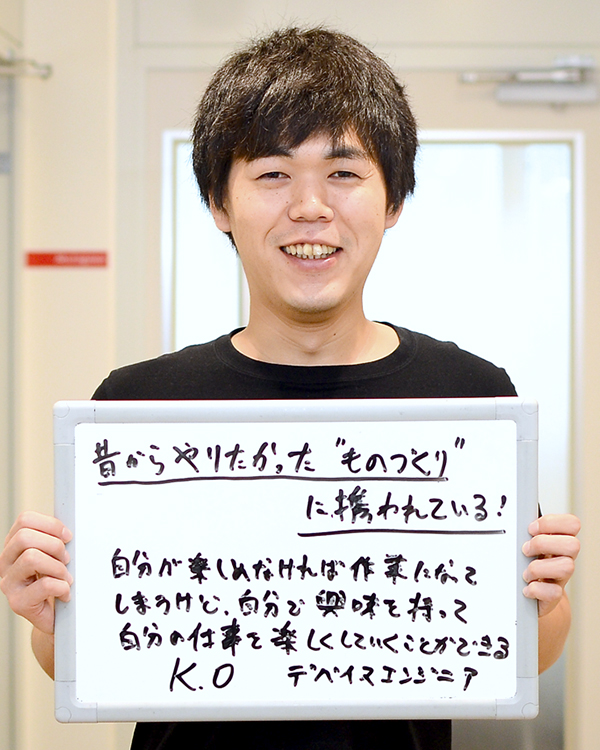 昔からやりたかった"ものづくり"
に携われている!
自分が楽しめなければ作業になって
しまうけど、自分で興味を持って
自分の仕事を楽しくしていくことができる
K.O デバイスエンジニア